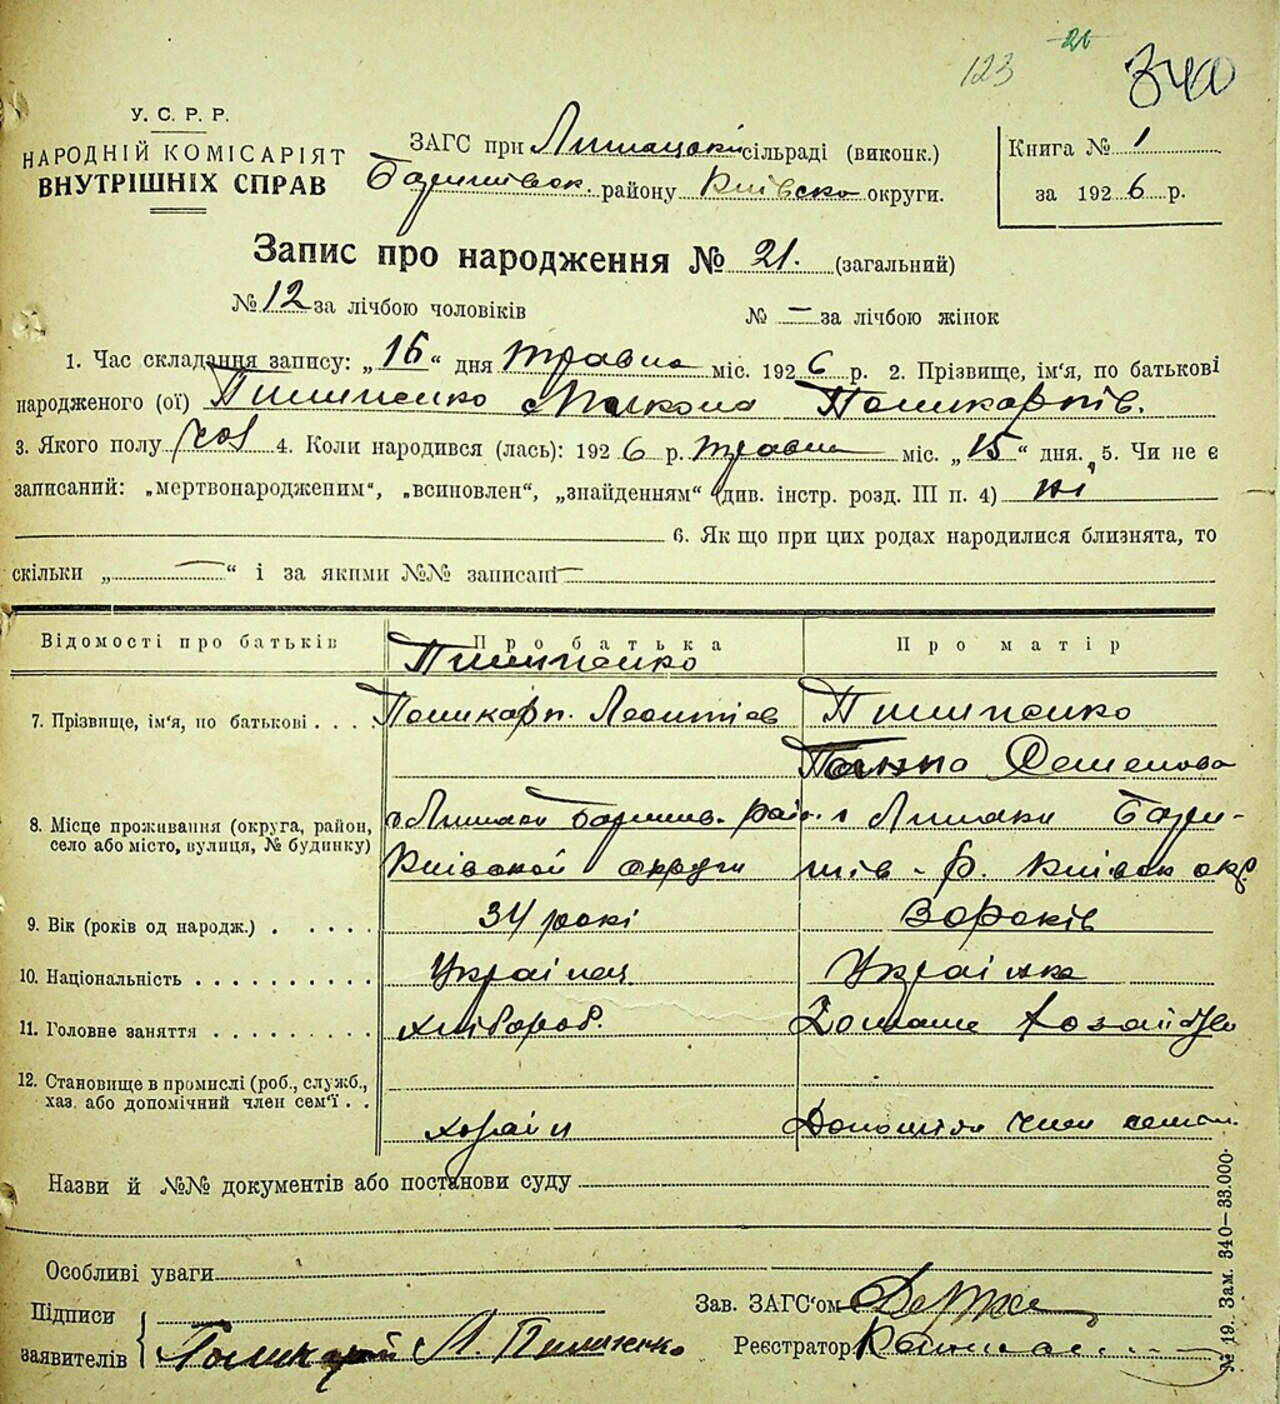 123 21 340
У. С. Р. Р.
НАРОДНІЙ КОМІСАРІЯТ
ВНУТРІШНІХ СПРАВ
ЗАГС при сільраді (виконк.)
Баришівск. району Київско округи.
Книга № 1
за 1926 р.
Запис про народження № 21. (загальний)
№ 12 за лічбою чоловіків № — за лічбою жінок
1. Час складання запису: „16“ дня травня міс. 1926 р. 2. Прізвище, ім'я, по батькові
народженого (ої) Пилипенко Микола Поликарпів.
3. Якого полу чол 4. Коли народився (лась): 1926 р. травня міс. „15“ дня. 5. Чи не є
записаний: „мертвонародженим“, „всиновлен“, „знайденням“ (див. інстр. розд. III п. 4) ні
6. Як що при цих родах народилися близнята, то
скільки „—“ і за якими №№ записані —
Відомості про батьків Про батька Про матір
Пилипенко
7. Прізвище, ім'я, по батькові . . . Поликарп. Леонтіев Пилипенко
Ганна Семенова
8. Місце проживання (округа, район,
село або місто, вулиця, № будинку)
с Лишаки Баришив. райо. с Лишаки Бари-
Київской округи шів. р. Київск окр.
9. Вік (років од народж.) . . . . . 34 рокі 30 років
10. Національність . . . . . . . . . . Українец. Українка
11. Головне заняття . . . . . . . . Хлібороб. Домашне хозяйство
12. Становище в промислі (роб., служб.,
хаз. або допомічний член сем'ї . .
хозяін член
Назви й №№ документів або постанови суду
Особливі уваги
Підписи
заявителів
Поликарп Л. Пилипенко
Зав. ЗАГС'ом
Реєстратор
№ 19. Зам. 340—33.000.